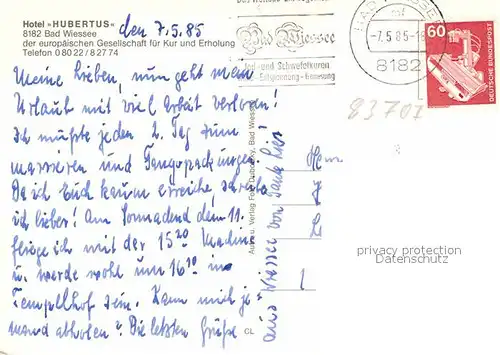 Hotel »HUBERTUS«
8182 Bad Wiessee
der europäischen Gesellschaft für Kur und Erholung
Telefon 0 80 22 / 8 27 74
den 7.5.85
Meine Lieben, nun geht mein
Urlaub mit viel Arbeit verloren!
Ich mußte jeden 2. Tag zum
massieren und Fangopackungen.
Da ich Euch kaum erreiche, schreibe
ich lieber! Am Sonnabend dem 11.
fliege ich mit der 15²⁰ Maschine
u. werde wohl um 16¹⁰ in
Tempelhof sein. Kann mich je-
mand abholen? Die letzten Grüße
aus Wiessee von Tante Lies
Bad Wiessee
Jod- und Schwefelkuren
Entspannung
BAD WIESSEE
-7.5.85-
8182
60
DEUTSCHE BUNDESPOST
83707
Bad Wiessee
CL
privacy protection
Datenschutz